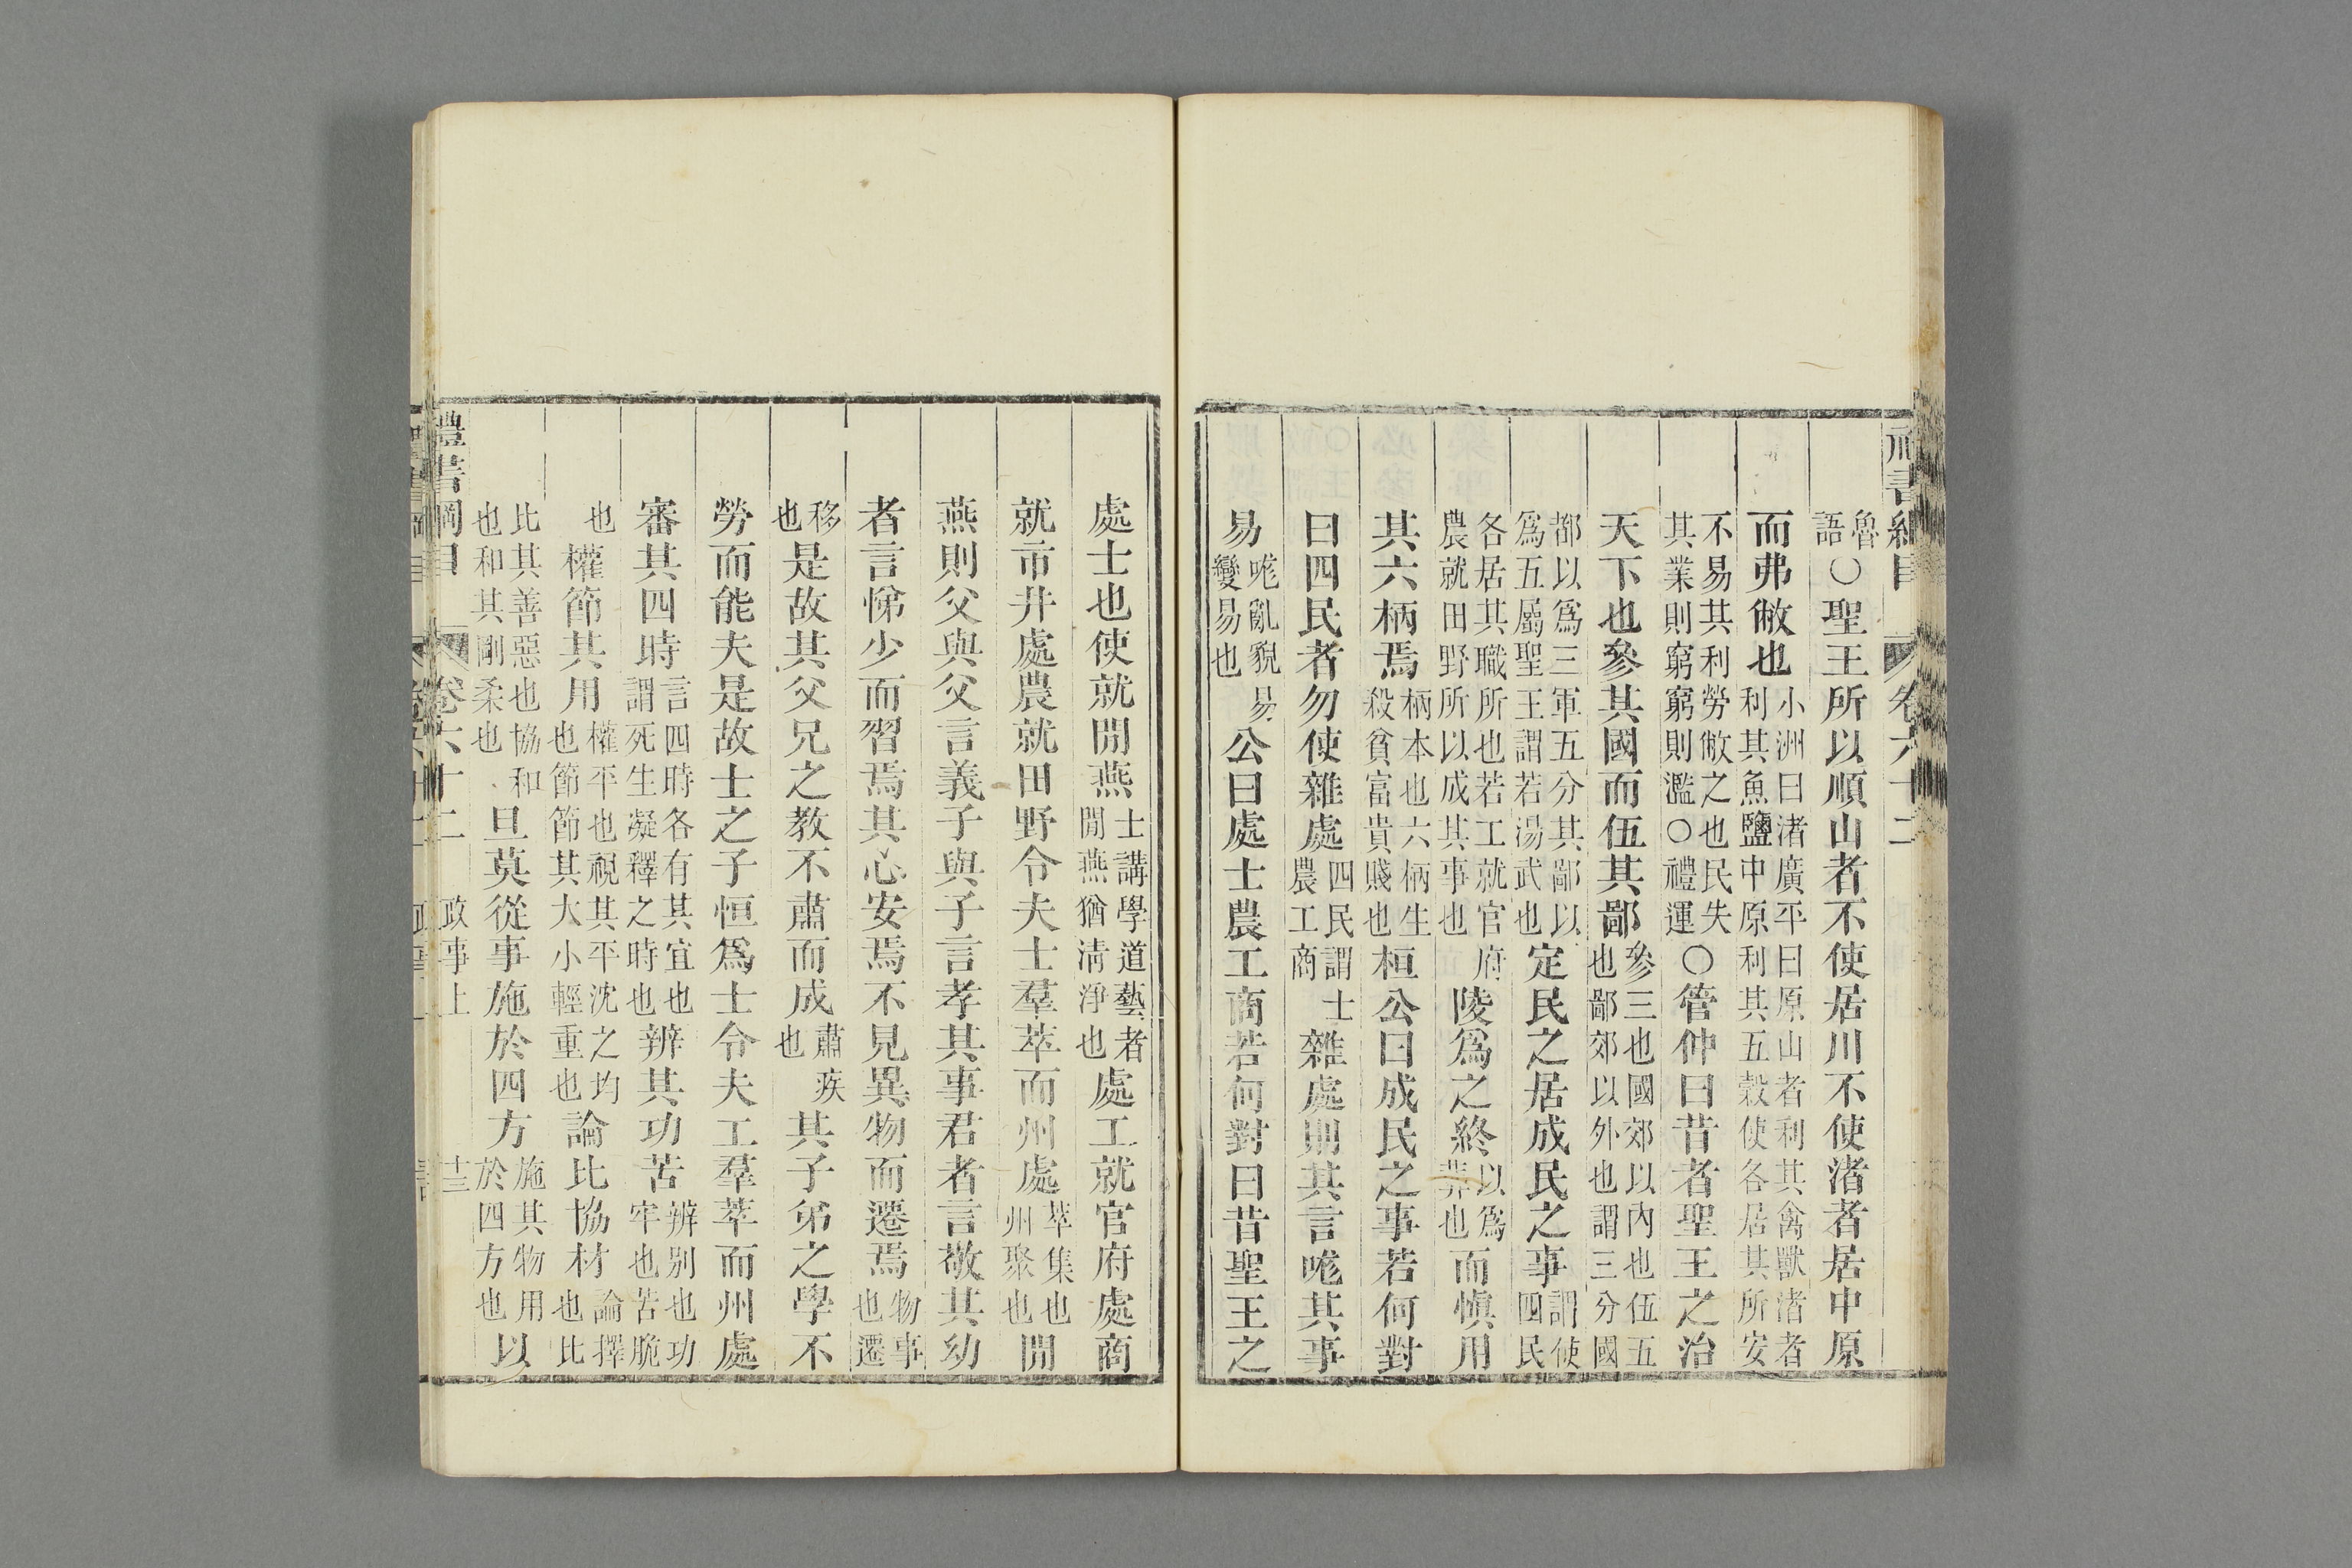 禮書綱目 卷六十二
魯語○聖王所以順山者不使居川不使渚者居中原
而弗敝也小洲曰渚廣平曰原山者利其禽獸渚者利其魚鹽中原利其五穀使各居其所安
不易其利勞敝之也民失其業則窮窮則濫○禮運○管仲曰昔者聖王之治
天下也參其國而伍其鄙參三也國郊以內也伍五也鄙郊以外也謂三分國
都以爲三軍五分其鄙以爲五屬聖王謂若湯武也定民之居成民之事謂使四民
各居其職所也若工就官府農就田野所以成其事也陵爲之終以爲葬也而愼用
其六柄焉柄本也六柄生殺貧富貴賤也桓公曰成民之事若何對
曰四民者勿使雜處四民謂士農工商雜處則其言哤其事
易哤亂貌易變易也公曰處士農工商若何對曰昔聖王之
處士也使就閒燕士講學道藝者閒燕猶淸淨也處工就官府處商
就市井處農就田野令夫士羣萃而州處萃集也州聚也閒
燕則父與父言義子與子言孝其事君者言敬其幼
者言悌少而習焉其心安焉不見異物而遷焉物事也遷
移也是故其父兄之教不肅而成肅疾也其子弟之學不
勞而能夫是故士之子恒爲士令夫工羣萃而州處
審其四時言四時各有其宜也謂死生凝釋之時也辨其功苦辨别也功牢也苦脆
也權節其用權平也視其平沈之均也節節其大小輕重也論比協材論擇也比
比其善惡也協和也和其剛柔也旦莫從事施於四方施其物用於四方也以
禮書綱目 卷六十二 政事上 十三